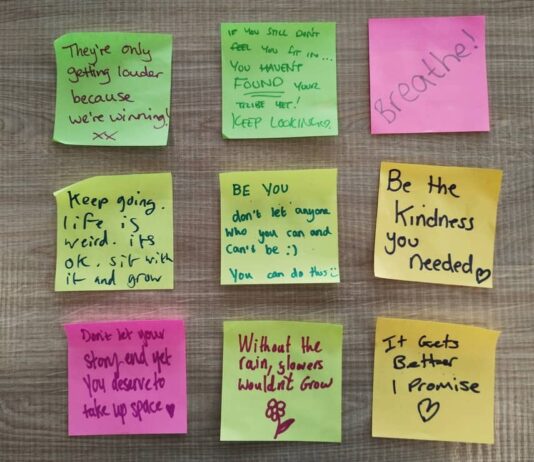 They're only
getting louder
because
we're winning!
xx
IF YOU STILL DON'T
FEEL YOU FIT IN...
YOU HAVEN'T
FOUND YOUR
TRIBE YET!
KEEP LOOKING
Breathe!
Keep going.
life is
weird. its
ok. sit with
it and grow
BE YOU
don't let anyone
who you can and
can't be :)
You can do this
Be the
Kindness
you
needed
Don't let your
story end yet
You deserve to
take up space
Without the
rain, flowers
wouldn't Grow
It Gets
Better
I Promise